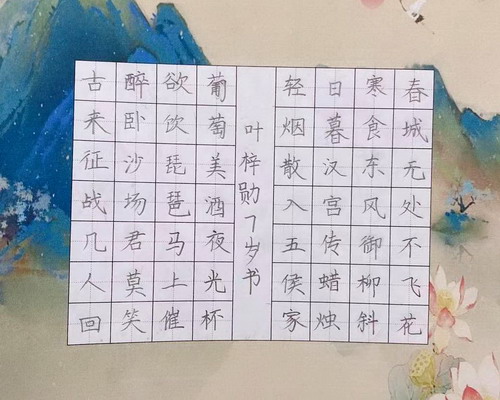 春城无处不飞花
寒食东风御柳斜
日暮汉宫传蜡烛
轻烟散入五侯家
叶梓勋7岁书
葡萄美酒夜光杯
欲饮琵琶马上催
醉卧沙场君莫笑
古来征战几人回